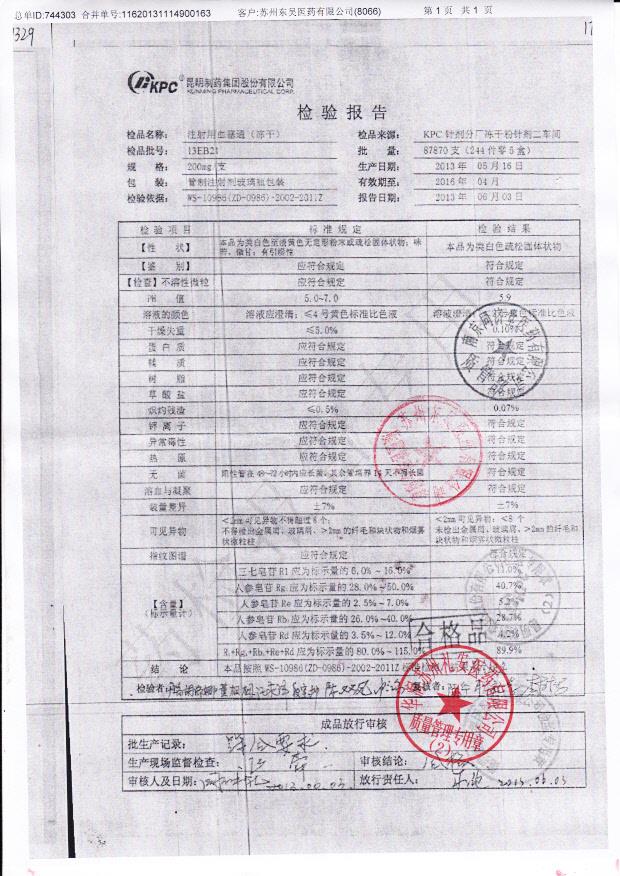 总单ID:744303 合并单号:11620131114900163 客户:苏州东吴医药有限公司(8066) 第 1 页 共 1 页
1329 17
KPC® 昆明制药集团股份有限公司
KUNMING PHARMACEUTICAL CORP.
检验报告
检品名称: 注射用血塞通(冻干) 检品来源: KPC 针剂分厂冻干粉针剂二车间
检品批号: 13EB21 批 量: 87870 支(244 件零 5 盒)
规 格: 200mg/支 生产日期: 2013 年 05 月 16 日
包 装: 管制注射剂玻璃瓶包装 有效期至: 2016 年 04 月
检验依据: WS-10986(ZD-0986)-2002-2011Z 报告日期: 2013 年 06 月 03 日
检 验 项 目 标 准 规 定 检 验 结 果
【性 状】 本品为类白色至淡黄色无定形粉末或疏松固体状物;味苦、微甘;有引湿性 本品为类白色疏松固体状物
【鉴 别】 应符合规定 符合规定
【检查】不溶性微粒 应符合规定 符合规定
pH 值 5.0~7.0 5.9
溶液的颜色 溶液应澄清;≤4 号黄色标准比色液 溶液澄清; 标准比色液
干燥失重 ≤5.0% 0.10%
蛋 白 质 应符合规定 符合规定
鞣 质 应符合规定 符合规定
树 脂 应符合规定 符合规定
草 酸 盐 应符合规定 符合规定
炽灼残渣 ≤0.5% 0.07%
钾 离 子 应符合规定 符合规定
异常毒性 应符合规定 符合规定
热 原 应符合规定 符合规定
无 菌 阳性管在 48~72 小时内应长菌,其余管培养 14 天不得长菌 符合规定
溶血与凝聚 应符合规定 符合规定
装量差异 ±7% ±7%
可见异物 <2mm 可见异物不得超过 8 个; <2mm 可见异物:≤8 个
不得检出金属屑、玻璃屑、>2mm 的纤毛和块状物和烟雾状微粒柱 未检出金属屑、玻璃屑、>2mm 的纤毛和块状物和烟雾状微粒柱
指纹图谱 应符合规定 符合规定
【含量】
(标示量计)
三七皂苷 R1 应为标示量的 6.0%~16.0% 11.0%
人参皂苷 Rg₁ 应为标示量的 28.0%~50.0% 40.7%
人参皂苷 Re 应为标示量的 2.5%~7.0%
人参皂苷 Rb₁ 应为标示量的 26.0%~40.0% 28.7%
人参皂苷 Rd 应为标示量的 3.5%~12.0% 4.2%
R₁+Rg₁+Rb₁+Re+Rd 应为标示量的 80.0%~115.0% 89.9%
结 论 本品按照 WS-10986(ZD-0986)-2002-2011Z
检验者: 复核者:
合格品
质量管理专用章
(2)
成品放行审核
批生产记录: 符合要求
生产现场监督检查: 审核结论: 合格
审核人及日期: 2013.06.03 放行责任人: 2013.06.03